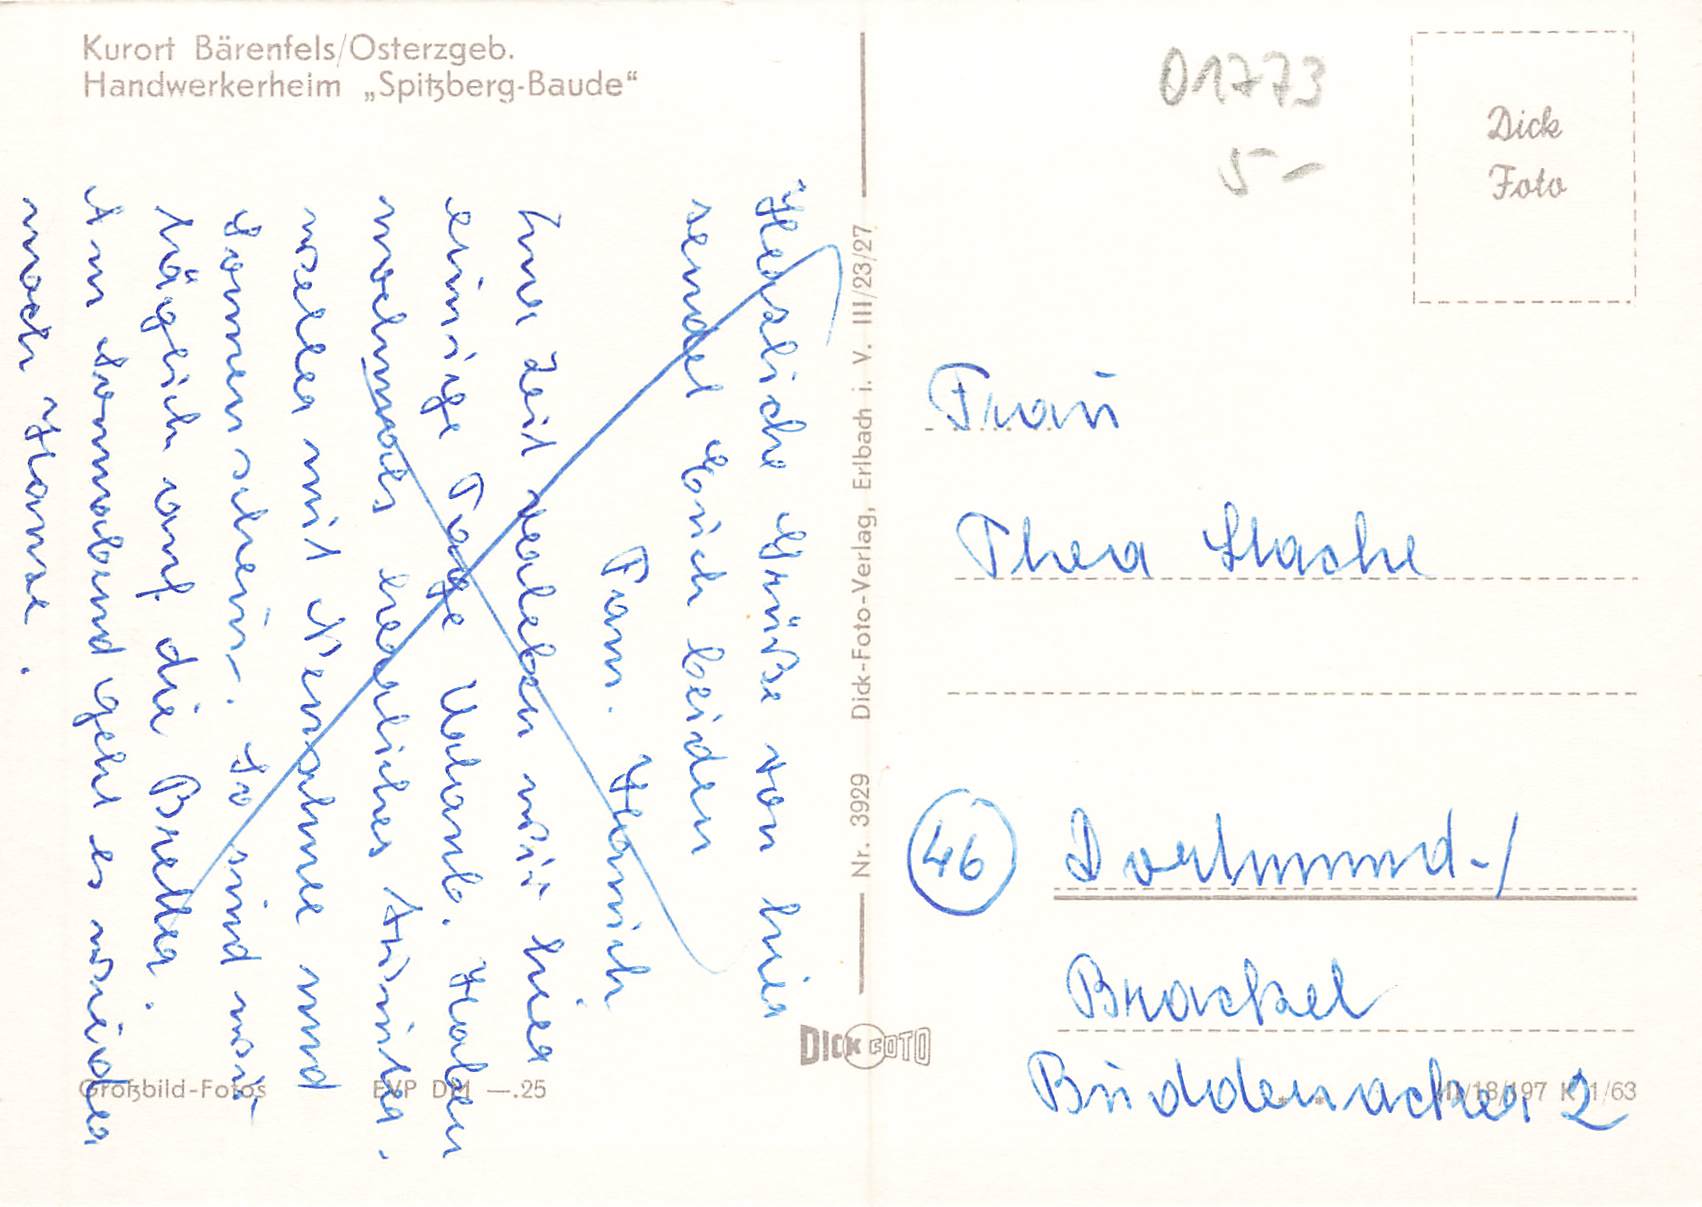 Kurort Bärenfels/Osterzgeb.
Handwerkerheim „Spitzberg-Baude“
Herzliche Grüße von hier
sendet Euch beiden
Fam. Hanich
Zur Zeit verleben wir hier
einige Tage Urlaub. Haben
nochmals herrliches Winter-
wetter mit Neuschnee und
Sonnenschein. So sind wir
täglich auf die Bretter.
Am Sonnabend geht es wieder
nach Hause.
Großbild-Fotos EVP DM —.25
Nr. 3929 Dick-Foto-Verlag, Erlbach i. V. III/23/27
DICK FOTO
01773
5-
Dick
Foto
Frau
Thea Stache
46 Dortmund-/
Brackel
Büddenacker 2
/18/197 K 1/63